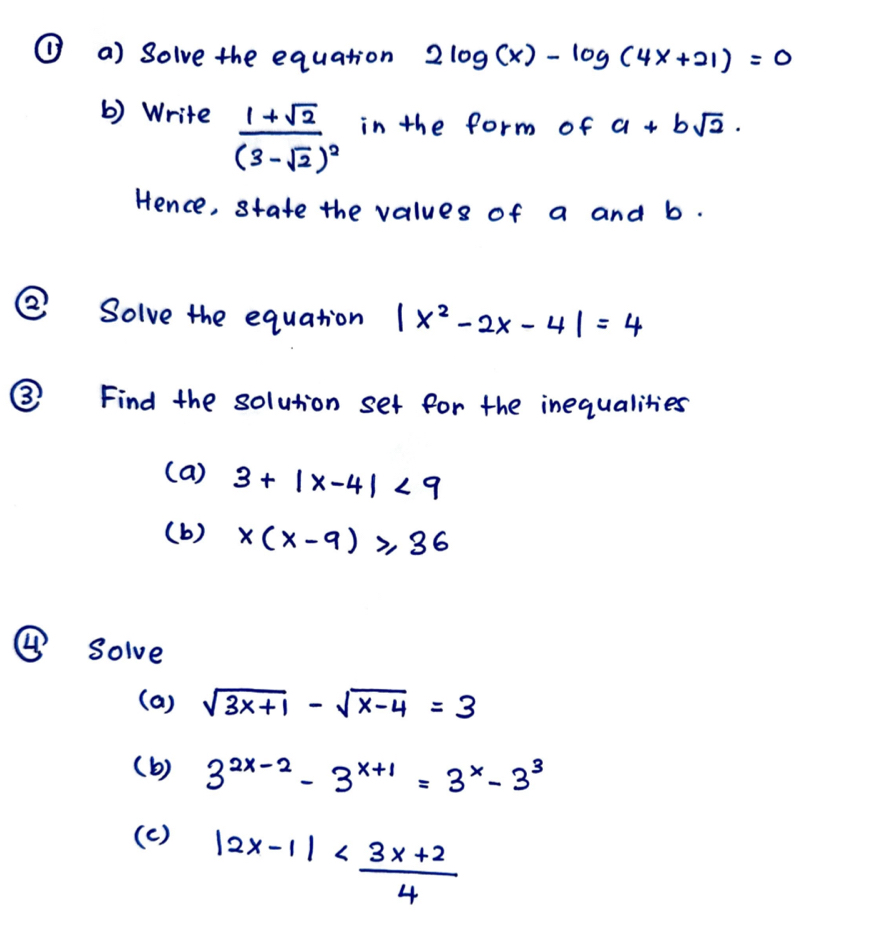 ① a) Solve the equation 2 log (x) - log (4x+21) = 0
b) Write (1+√2)/(3-√2)² in the form of a + b√2.
Hence, state the values of a and b.
② Solve the equation |x² - 2x - 4| = 4
③ Find the solution set for the inequalities
(a) 3 + |x-4| < 9
(b) x(x-9) ⩾ 36
④ Solve
(a) √(3x+1) - √(x-4) = 3
(b) 3²ˣ⁻² - 3ˣ⁺¹ = 3ˣ - 3³
(c) |2x-1| < (3x+2)/4